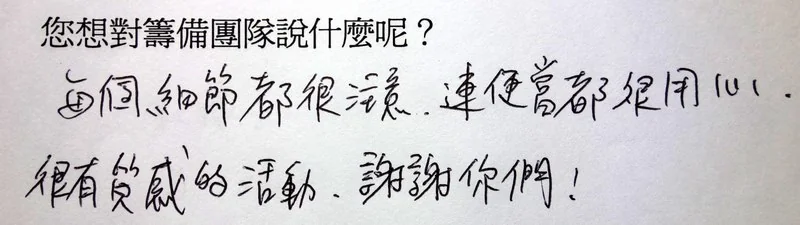 您想對籌備團隊說什麼呢？
每個細節都很注意、連便當都很用心、
很有質感的活動、謝謝你們！